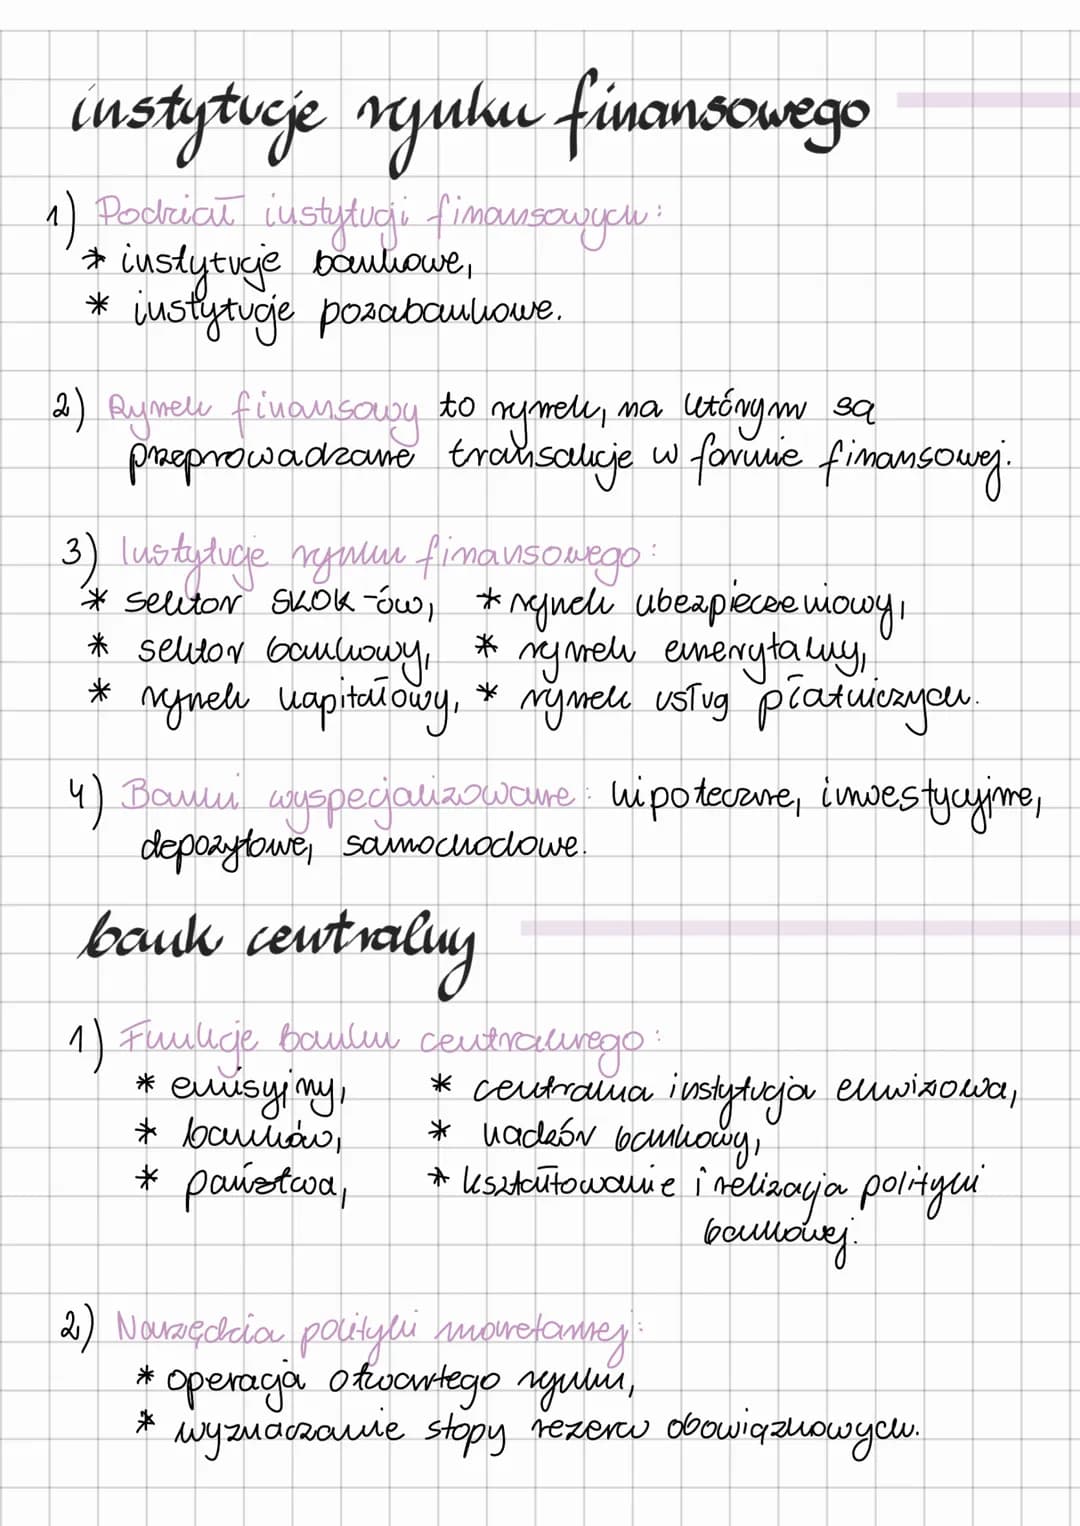 instytucje rynku finansowego
1) Podział instytucji finansowych:
* instytucje bankowe,
* instytucje pozabankowe.
2) Rynek finansowy to rynek, na którym są
przeprowadzane transakcje w formie finansowej.
3) Instytucje rynku finansowego:
* sektor SKOK-ów, * rynek ubezpieczeniowy,
* sektor bankowy, * rynek emerytalny,
* rynek kapitałowy, * rynek usług płatniczych.
4) Banki wyspecjalizowane: hipoteczne, inwestycyjne,
depozytowe, samochodowe.
bank centralny
1) Funkcje banku centralnego:
* emisyjny, * centralna instytucja enwizowa,
* banków, * nadzór bankowy,
* państwa, * kształtowanie i relizacja polityki
bankowej.
2) Narzędzia polityki monetarnej:
* operacja otwartego rynku,
* wyznaczanie stopy rezerw obowiązkowych.